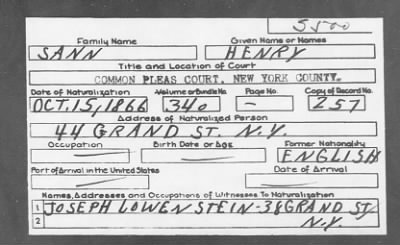 5500
Family Name Given Name or Names
SANN HENRY
Title and Location of Court
COMMON PLEAS COURT, NEW YORK COUNTY.
Date of Naturalization Volume or Bundle No. Page No. Copy of Record No.
OCT. 15, 1866 340 - 257
Address of Naturalized Person
44 GRAND ST. N.Y.
Occupation Birth Date or Age Former Nationality
ENGLISH
Port of Arrival in the United States Date of Arrival
Names, Addresses and Occupations of Witnesses To Naturalization
1 JOSEPH LOWENSTEIN-38 GRAND ST.
2 N.Y.